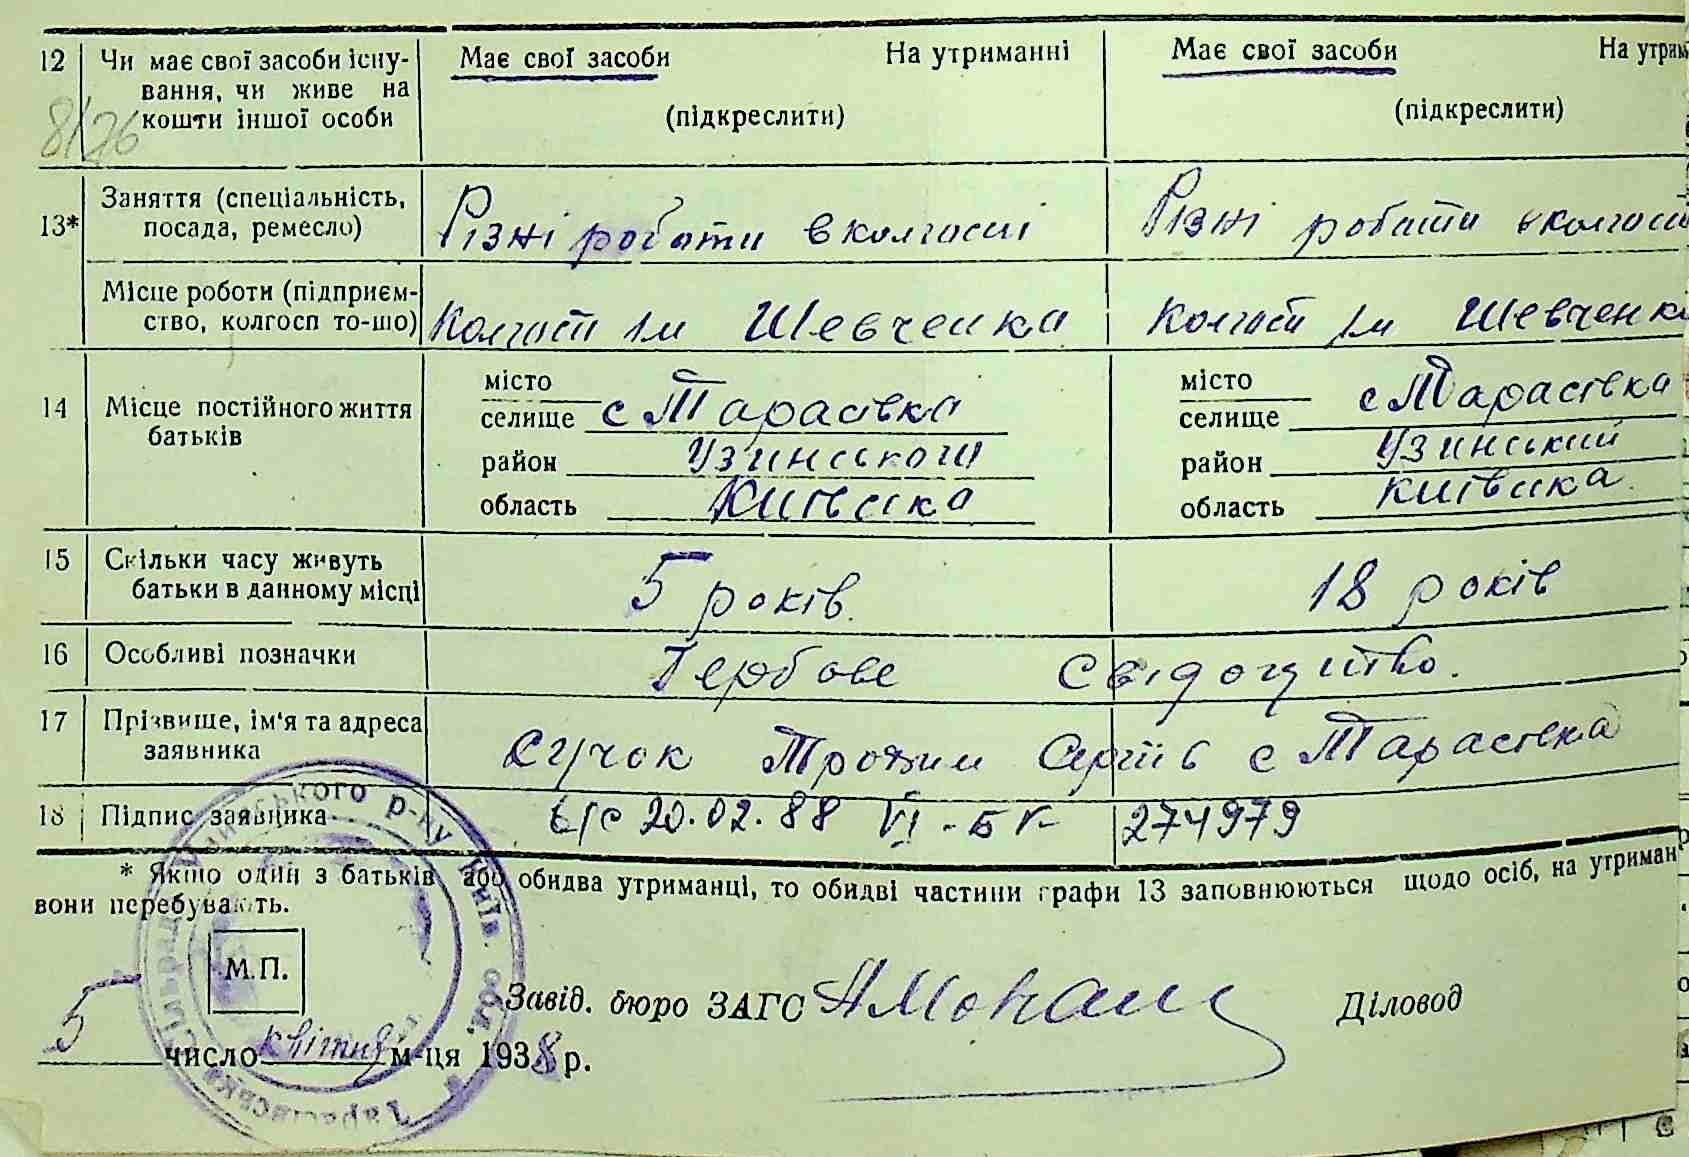 12 Чи має свої засоби існу- Має свої засоби На утриманні Має свої засоби На утрим
вання, чи живе на
кошти іншої особи (підкреслити) (підкреслити)
8/26
13* Заняття (спеціальність, Різні роботи в колгоспі Різні роботи в колгосп
посада, ремесло)
Місце роботи (підприєм- Колгосп Ім Шевченка Колгосп Ім Шевченк
ство, колгосп то-що)
14 Місце постійного життя місто с Тарасівка місто с Тарасівка
батьків селище селище
район Узинського район Узинський
область Київська область Київська
15 Скільки часу живуть 5 років. 18 років
батьки в данному місці
16 Особливі позначки Гербове Свідоцтво.
17 Прізвище, ім'я та адреса Сучок Трохим с Тарасівка
заявника
18 Підпис заявника 20.02.88 VI-БК- 274979
* Якщо один з батьків або обидва утриманці, то обидві частини графи 13 заповнюються щодо осіб, на утриман
вони перебувають.
М.П.
Завід. бюро ЗАГС Діловод
5 число квітня м-ця 1938 р.
Тарасівська сільрада Узинського р-ну Київ. обл.